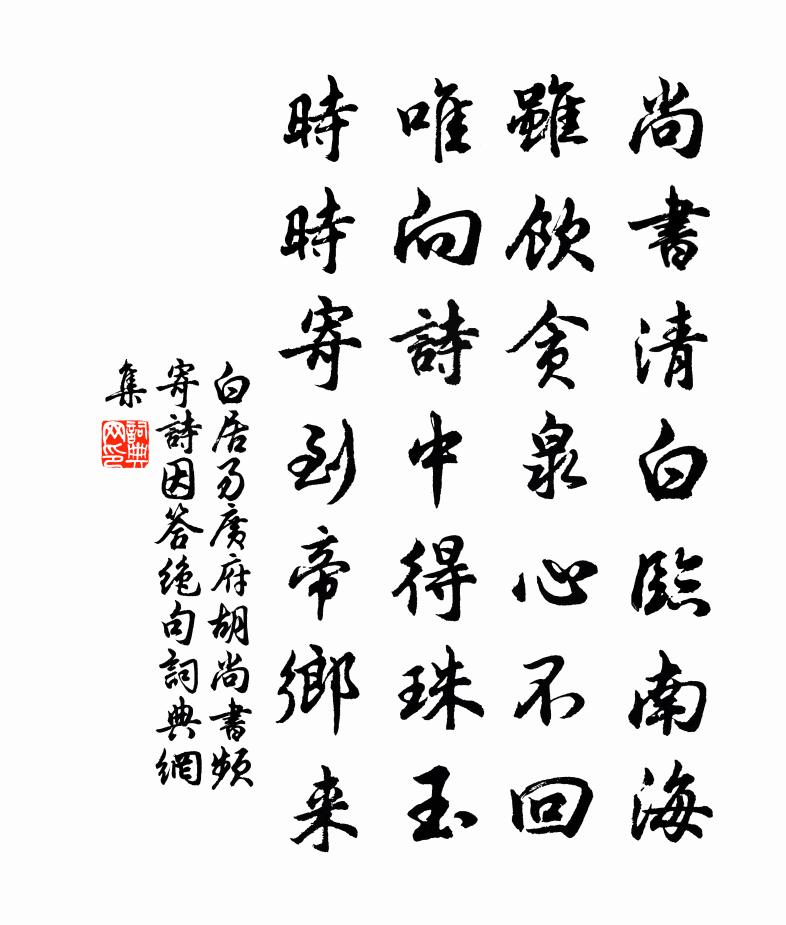 尚書清白臨南海
雖飲貪泉心不回
唯向詩中得珠玉
時時寄到帝鄉来
白居易廣府胡尚書頻
寄詩因答絶句詞典網
集
詞典網印